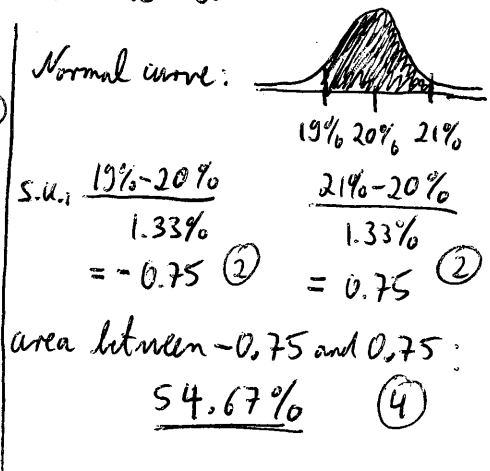 Normal curve:
19% 20% 21%
s.u.: 19%-20% / 1.33% 21%-20% / 1.33%
= -0.75 ② = 0.75 ②
area between -0.75 and 0.75:
54.67% ④